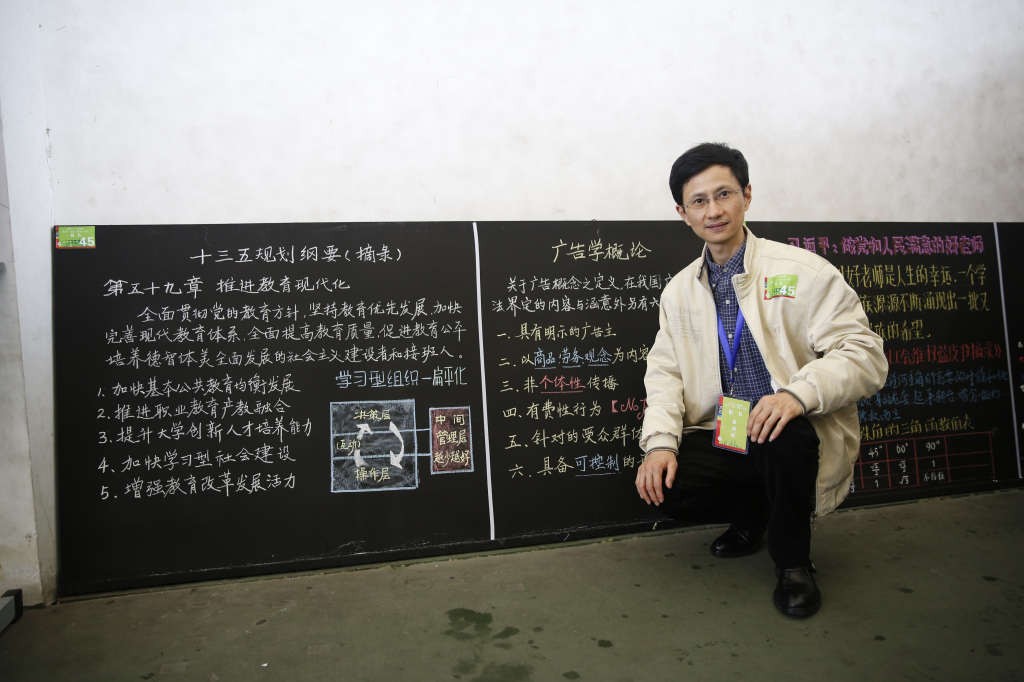 45
十三五规划纲要（摘录）
第五十九章 推进教育现代化
全面贯彻党的教育方针，坚持教育优先发展，加快
完善现代教育体系，全面提高教育质量，促进教育公平
培养德智体美全面发展的社会主义建设者和接班人。
1.加快基本公共教育均衡发展
2.推进职业教育产教融合
3.提升大学创新人才培养能力
4.加快学习型社会建设
5.增强教育改革发展活力
学习型组织—扁平化
决策层
互动
操作层
中间
管理层
越少越好
广告学概论
关于广告概念之定义，在我国
法界定的内容与涵意外另有
一.具有明示的广告主
二.以商品劳务观念为内容
三.非个体性传播
四.有费性行为【No
五.针对的受众群体
六.具备可控制的
:做党和人民满意的好老师
好老师是人生的幸运，一个学
源源不断涌现出一批又
的希望。
角的三角函数值表
45° 60° 90°
1
1 √3 不存在
45